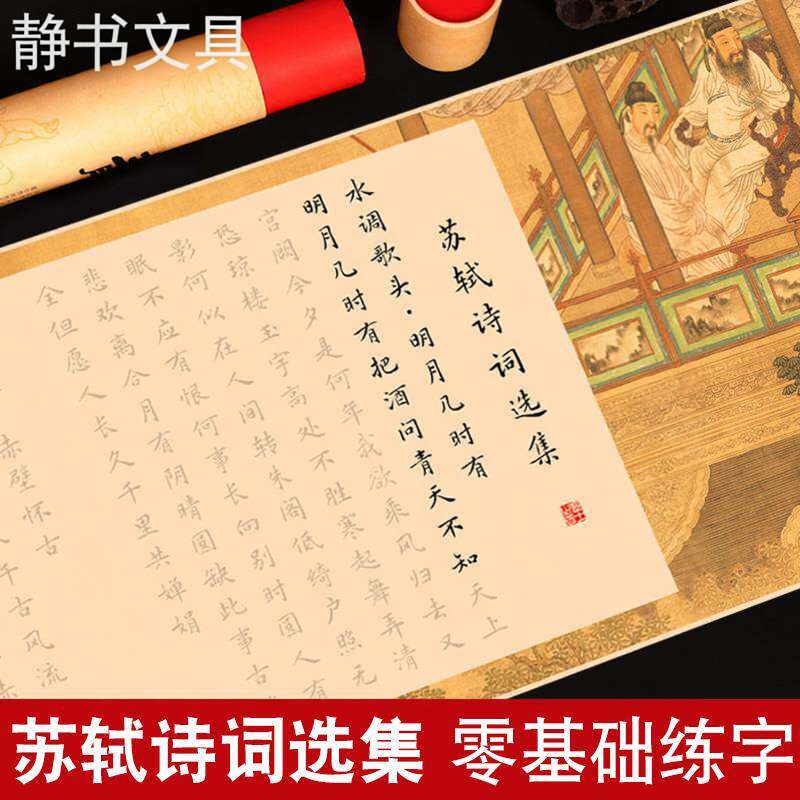 静书文具
苏轼诗词选集
水调歌头·明月几时有
明月几时有把酒问青天不知天上
宫阙今夕是何年我欲乘风归去又
恐琼楼玉宇高处不胜寒起舞弄清
影何似在人间转朱阁低绮户照无
眠不应有恨何事长向别时圆人有
悲欢离合月有阴晴圆缺此事古
全但愿人长久千里共婵娟
赤壁怀古
千古风流
苏轼诗词选集 零基础练字